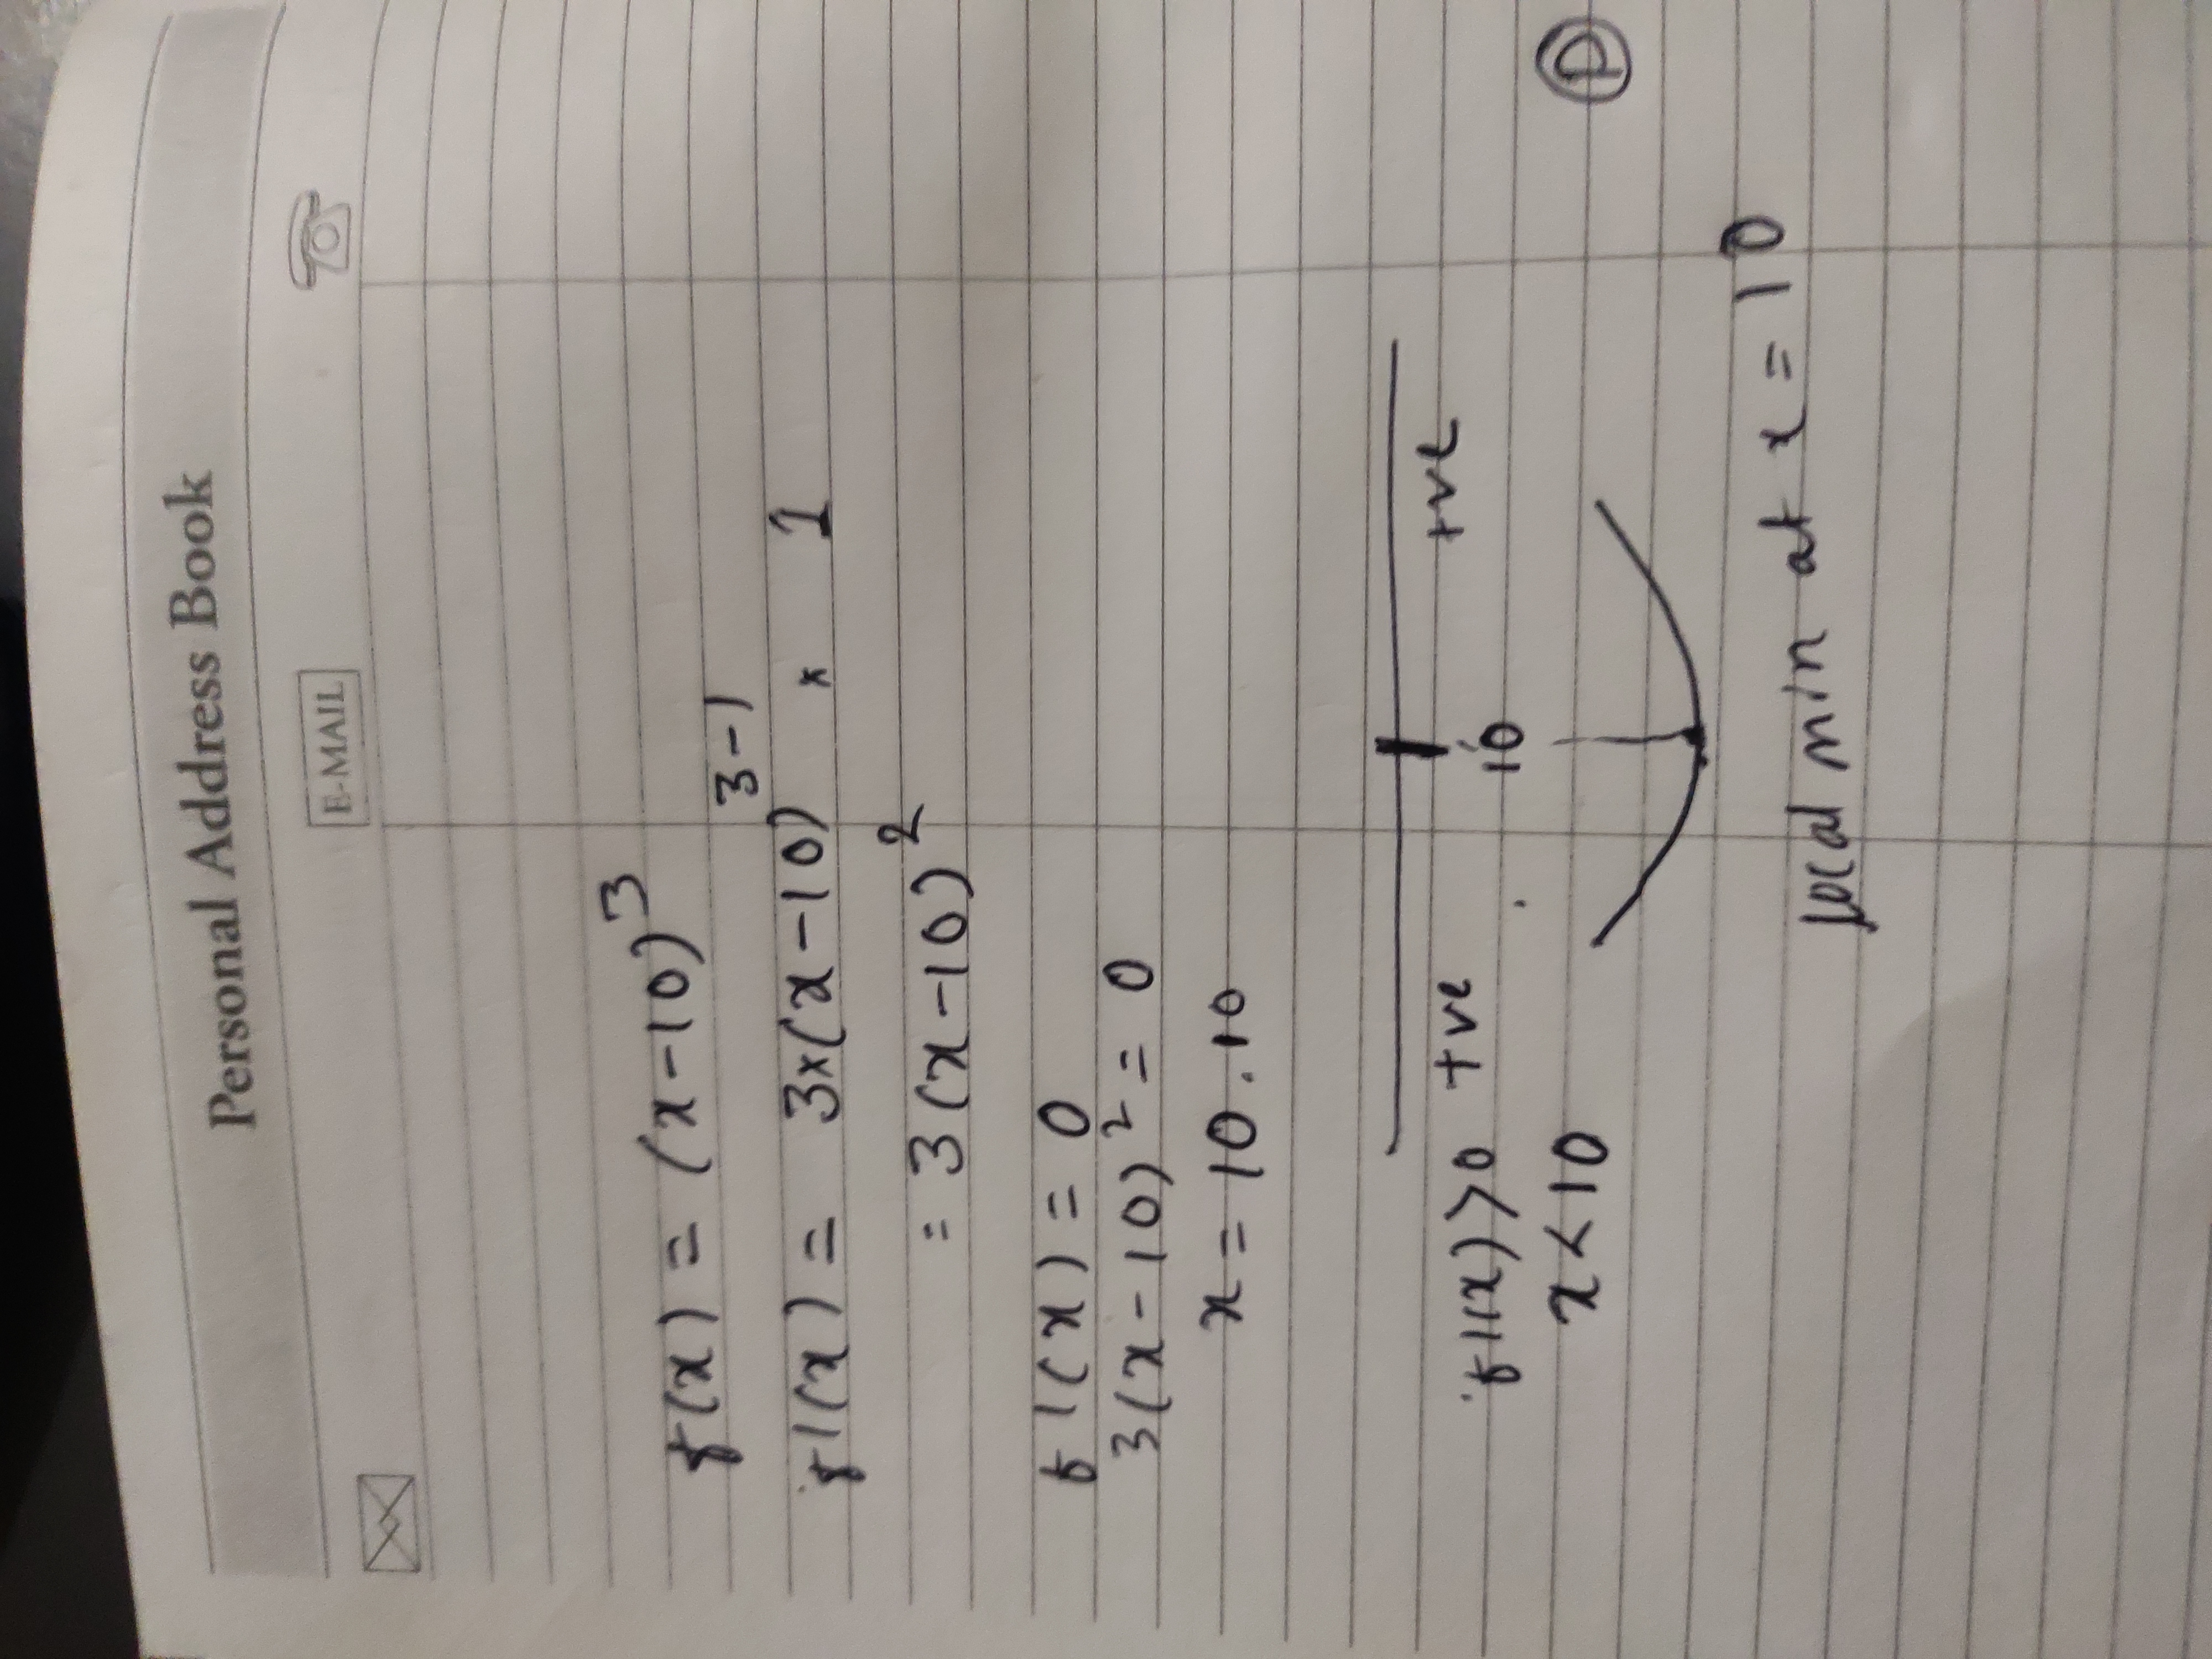 Personal Address Book
E-MAIL
f(x) = (x-10)^3
f'(x) = 3×(x-10)^3-1 × 1
= 3(x-10)^2
f'(x) = 0
3(x-10)^2 = 0
x = 10.10
f'(x)>0 +ve 10 +ve
x<10
D
local min at x = 10